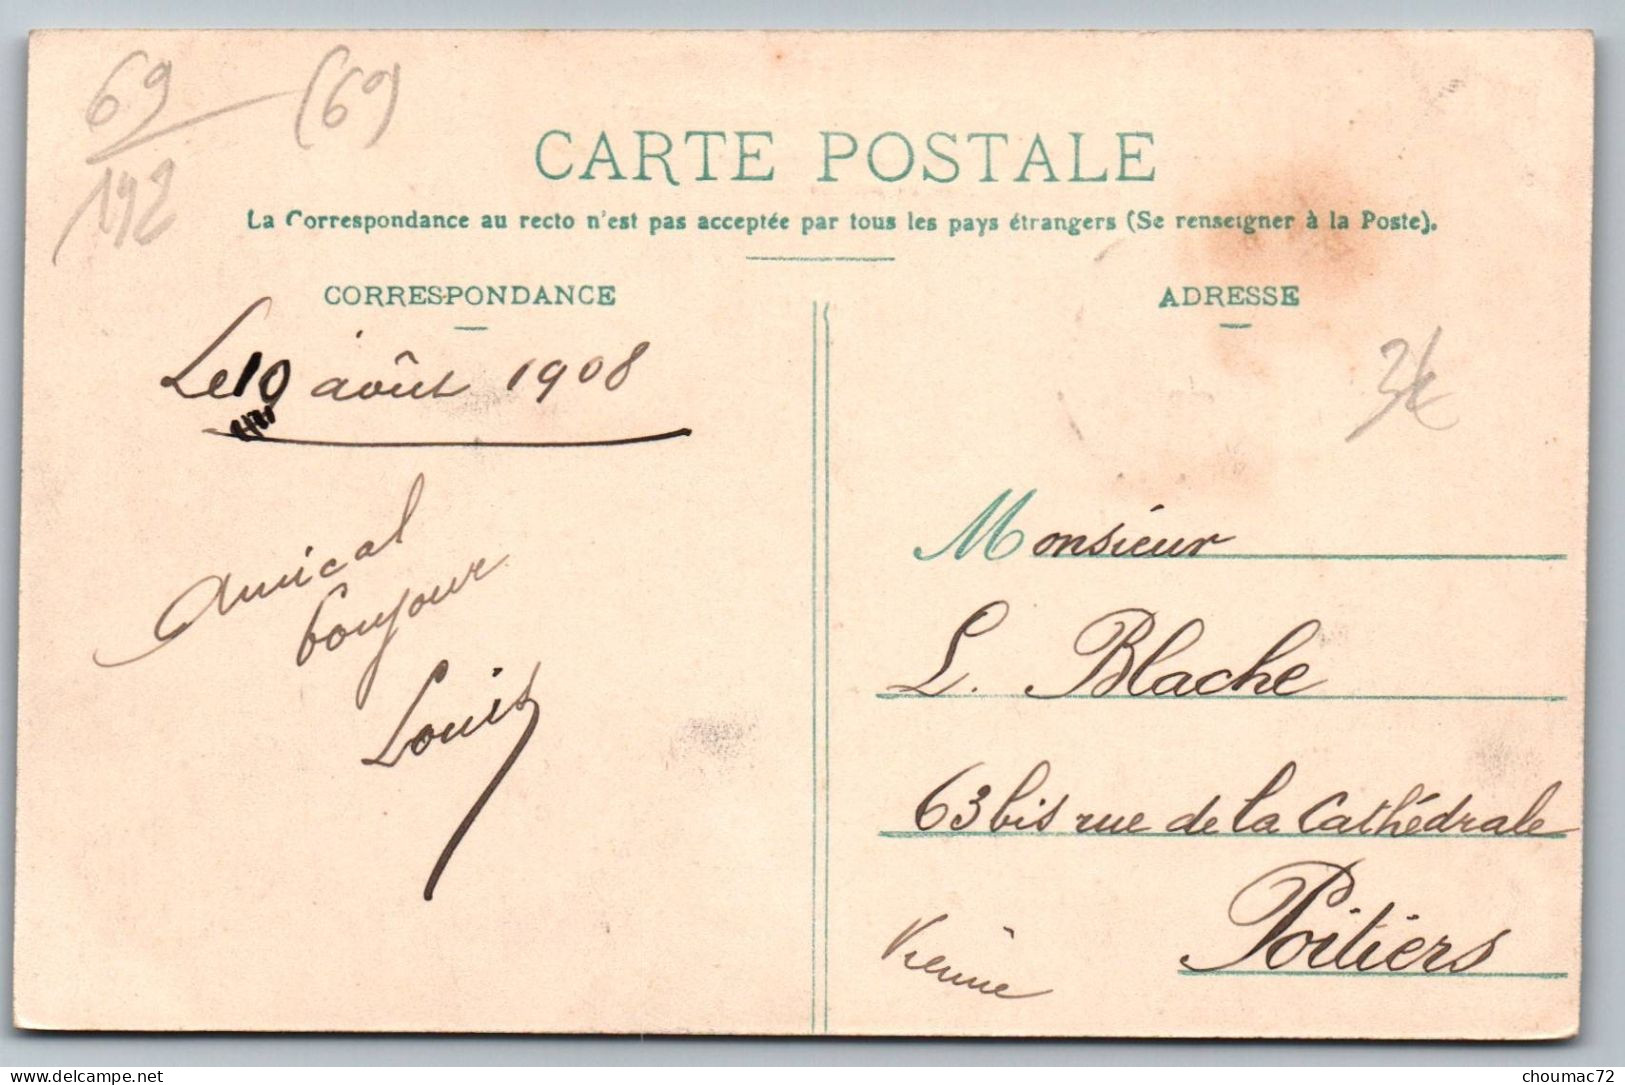 69 (69)
192
CARTE POSTALE
La Correspondance au recto n'est pas acceptée par tous les pays étrangers (Se renseigner à la Poste).
CORRESPONDANCE
Le 10 août 1908
Amical
bonjour
Louis
ADRESSE
3€
Monsieur
L. Blache
63 bis rue de la Cathédrale
Poitiers
Vienne
choumac72